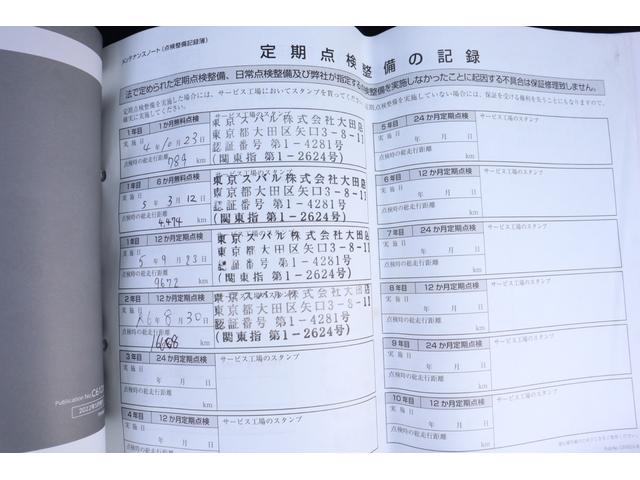 メンテナンスノート（点検整備記録簿）
定期点検整備の記録
法で定められた定期点検整備、日常点検整備及び弊社が指定する点検整備を実施しなかったことに起因する不具合は保証修理致しません。
1年目 1か月無料点検
実施日 4年10月23日
点検時の総走行距離
789 km
サービス工場のスタンプ
東京スバル株式会社大田店
東京都大田区矢口3-8-11
認証番号 第1-4281号
(関東指 第1-2624号)
1年目 6か月無料点検
実施日 5年3月12日
点検時の総走行距離
4,474 km
東京スバル株式会社大田店
東京都大田区矢口3-8-11
認証番号 第1-4281号
(関東指 第1-2624号)
1年目 12か月定期点検
実施日 5年9月23日
点検時の総走行距離
9672 km
東京スバル株式会社大田店
東京都大田区矢口3-8-11
認証番号 第1-4281号
(関東指 第1-2624号)
2年目 12か月定期点検
実施日 R6年8月30日
点検時の総走行距離
km
東京スバル株式会社大田店
東京都大田区矢口3-8-11
認証番号 第1-4281号
(関東指 第1-2624号)
3年目 24か月定期点検
サービス工場のスタンプ
実施日 年 月 日
点検時の総走行距離
km
4年目 12か月定期点検
サービス工場のスタンプ
実施日 年 月 日
点検時の総走行距離
km
5年目 24か月定期点検
サービス工場のスタンプ
実施日 年 月 日
点検時の総走行距離
km
6年目 12か月定期点検
サービス工場のスタンプ
実施日 年 月 日
点検時の総走行距離
km
7年目 24か月定期点検
サービス工場のスタンプ
実施日 年 月 日
点検時の総走行距離
km
8年目 12か月定期点検
サービス工場のスタンプ
実施日 年 月 日
点検時の総走行距離
km
9年目 24か月定期点検
サービス工場のスタンプ
実施日 年 月 日
点検時の総走行距離
km
10年目 12か月定期点検
サービス工場のスタンプ
実施日 年 月 日
点検時の総走行距離
km
Publication No.